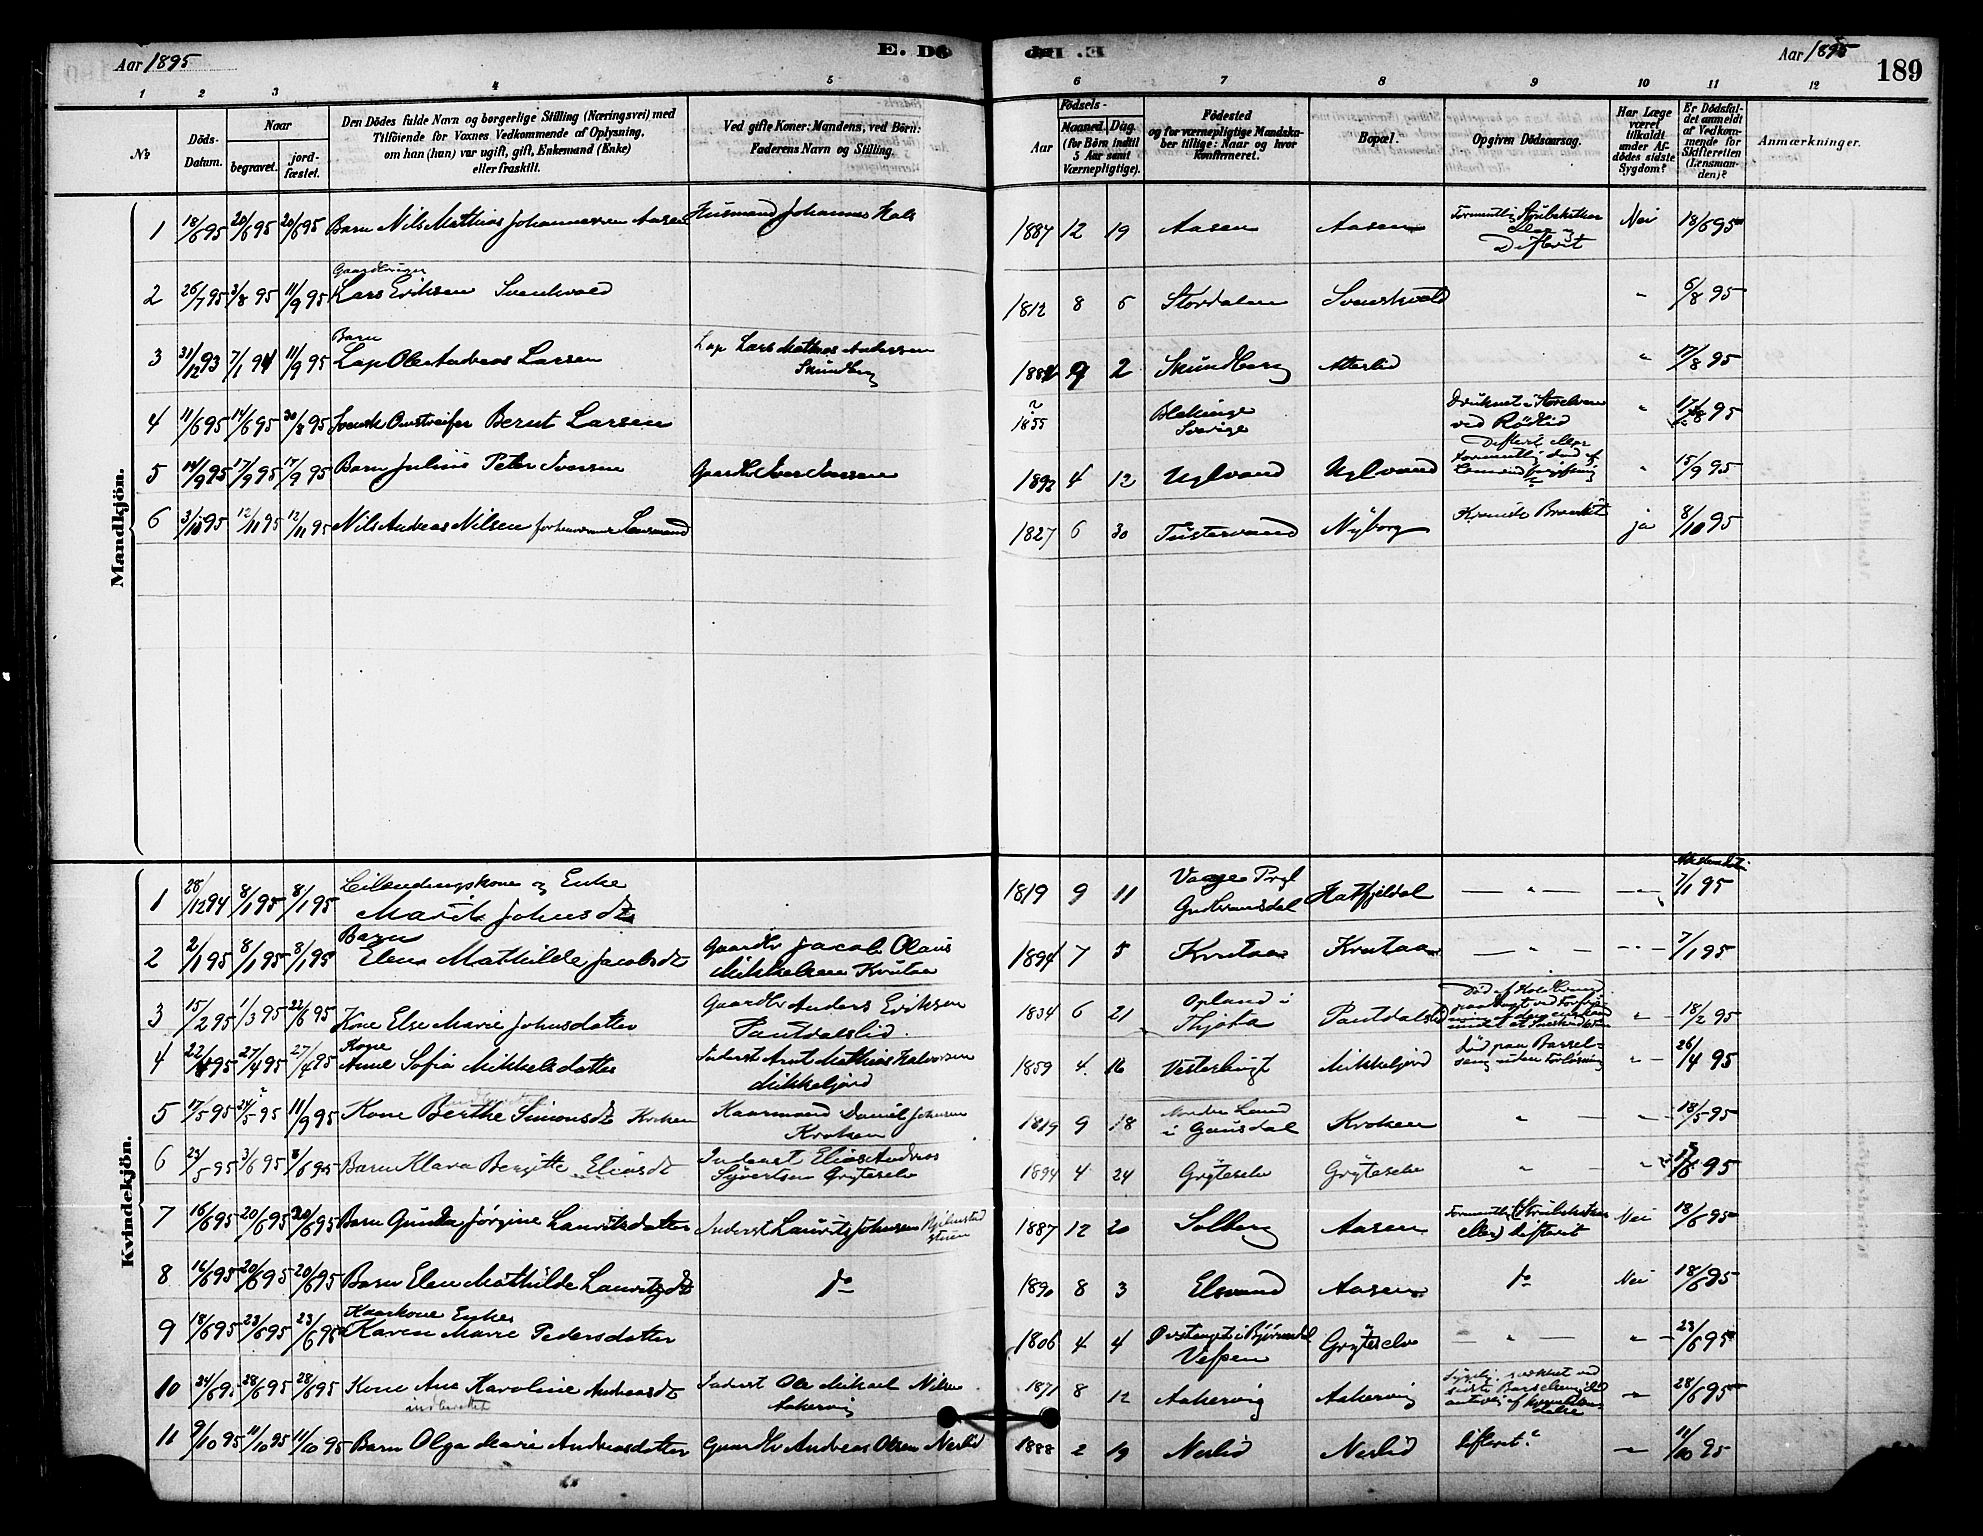 Aar 1895
E. Dö
E. Dö
Aar 1895
189
1 2 3 4 5 6 7 8 9 10 11 12
No
Döds-
Datum.
Naar
begravet.
jord-
fæstet.
Den Dödes fulde Navn og borgerlige Stilling (Næringsvei) med
Tilföiende for Voxnes Vedkommende af Oplysning,
om han (hun) var ugift, gift, Enkemand (Enke)
eller fraskilt.
Ved gifte Koner: Mandens, ved Börn:
Faderens Navn og Stilling.
Födsels-
Aar
Maaned. Dag.
(for Börn indtil
5 Aar samt
Værnepligtige).
Födested
og for værnepligtige Mandska-
ber tillige: Naar og hvor
konfirmeret.
Bopæl.
Opgiven Dödsaarsag.
Har Læge
været
tilkaldt
under Af-
dödes sidste
Sygdom?
Er Dödsfal-
det anmeldt
af Vedkom-
mende for
Skifteretten
(Lensman-
den)?
Anmærkninger.
Mandkjön.
1 18/6 95 20/6 95 20/6 95 Barn Nils Mathias Johannessen Aasen Husmand Johannes 1887 12 19 Aasen Aasen Formentlig Strubehoste eller Difterit Nei 18/6 95
Gaardbruger
2 26/7 95 3/8 95 11/9 95 Lars Eriksen Svenskvold 1812 8 6 Stordalen Svenskvold " 6/8 95
Barn
3 31/12 93 7/1 94 11/9 95 Lap Ole Andreas Larsen Lap Lars Mathias Andersen 9 2 " 17/8 95
4 11/6 95 14/6 95 30/8 95 Svensk Omstreifer Bernt Larsen 1855 Blekinge Sverige Druknet i Storelven ved Rödlid "
5 14/9 95 17/9 95 17/9 95 Barn Julius Peter Iversen Gaardbr Iver Iversen 1892 4 12 Uglvand Uglvand Difterit eller " 15/9 95
6 3/10 95 12/11 95 12/11 95 Nils Andreas Nilsen forhenværende Lensmand 1827 6 30 Tustervand Nyborg Kronisk Bronkit ja 8/10 95
Kvindekjön.
1 28/12 94 8/1 95 8/1 95 Leilendingskone og Enke Marit Johnsdt 1819 9 11 Vaage Prgl Gudbransdal Hatfjeldal — " — 7/1 95
Barn
2 2/1 95 8/1 95 8/1 95 Elen Mathilde Jacobsdt Gaardbr Jacob Olaus Mikkelsen Krutaa 1894 7 5 Krutaa Krutaa — " — 7/1 95
3 15/2 95 1/3 95 22/6 95 Kone Else Marie Johnsdatter Gaardbr Anders Eriksen Pantdalslid 1834 6 21 Opland i Thjøta Pantdalslid " 18/2 95
Kone
4 22/4 95 27/4 95 27/4 95 Anne Sofia Mikkelsdatter Inderst Arnt Mathias Halvorsen Mikkeljord 1859 4 16 Vesterbugt Mikkeljord Död paa Barselseng uden Forløsning " 26/4 95
5 17/5 95 24/5 95 11/9 95 Kone Berthe Simonsdt Kroken Kaarmand Daniel Johnsen Kroken 1819 9 18 Nordre Land i Gausdal Kroken " 18/5 95
6 24/5 95 3/6 95 Barn Klara Bergitte Eliasdt Inderst Elias Andreas Syvertsen Gryteselv 1894 4 24 Grytselv Gryteselv "
7 16/6 95 20/6 95 20/6 95 Barn Gunda Jørgine Lauritsdatter Inderst Laurits Johnsen 1887 12 20 Solberg Aasen Formentlig (Strubehoste eller) Difterit Nei 18/6 95
8 16/6 95 20/6 95 20/6 95 Barn Elen Mathilde Lauritzdt do 1890 8 3 Elsvand Aasen do Nei 18/6 95
Kaarkone Enke
9 18/6 95 23/6 95 23/6 95 Karen Marie Pedersdatter 1806 4 4 Vefsen Gryteselv — " — " 23/6 95
10 24/6 95 28/6 95 28/6 95 Kone Ane Karoline Andreasdt Inderst Ole Mikael Nilsen Aakervig 1871 8 12 Aakervig Aakervig " 28/6 95
11 9/10 95 11/10 95 11/10 95 Barn Olga Marie Andreasdatter Gaardbr Andreas Olsen Nerlid 1888 2 19 Nerlid Nerlid Difterit? " 11/10 95